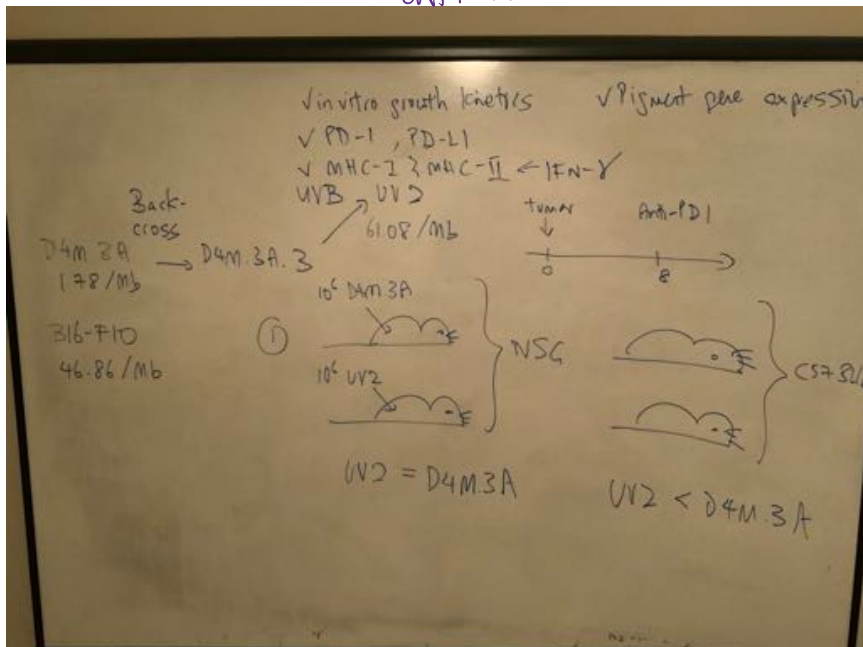 √ in vitro growth kinetics
√ Pigment gene expression
√ PD-1, PD-L1
√ MHC-I & MHC-II ← IFN-γ
UVB → UV2
61.08/Mb
Back-
cross
D4M 3A → D4M.3A.3
178/Mb
B16-F10
46.86/Mb
tumor
Anti-PD1
0
8
①
10⁶ D4M 3A
10⁶ UV2
NSG
C57BL/
UV2 = D4M.3A
UV2 < D4M.3A